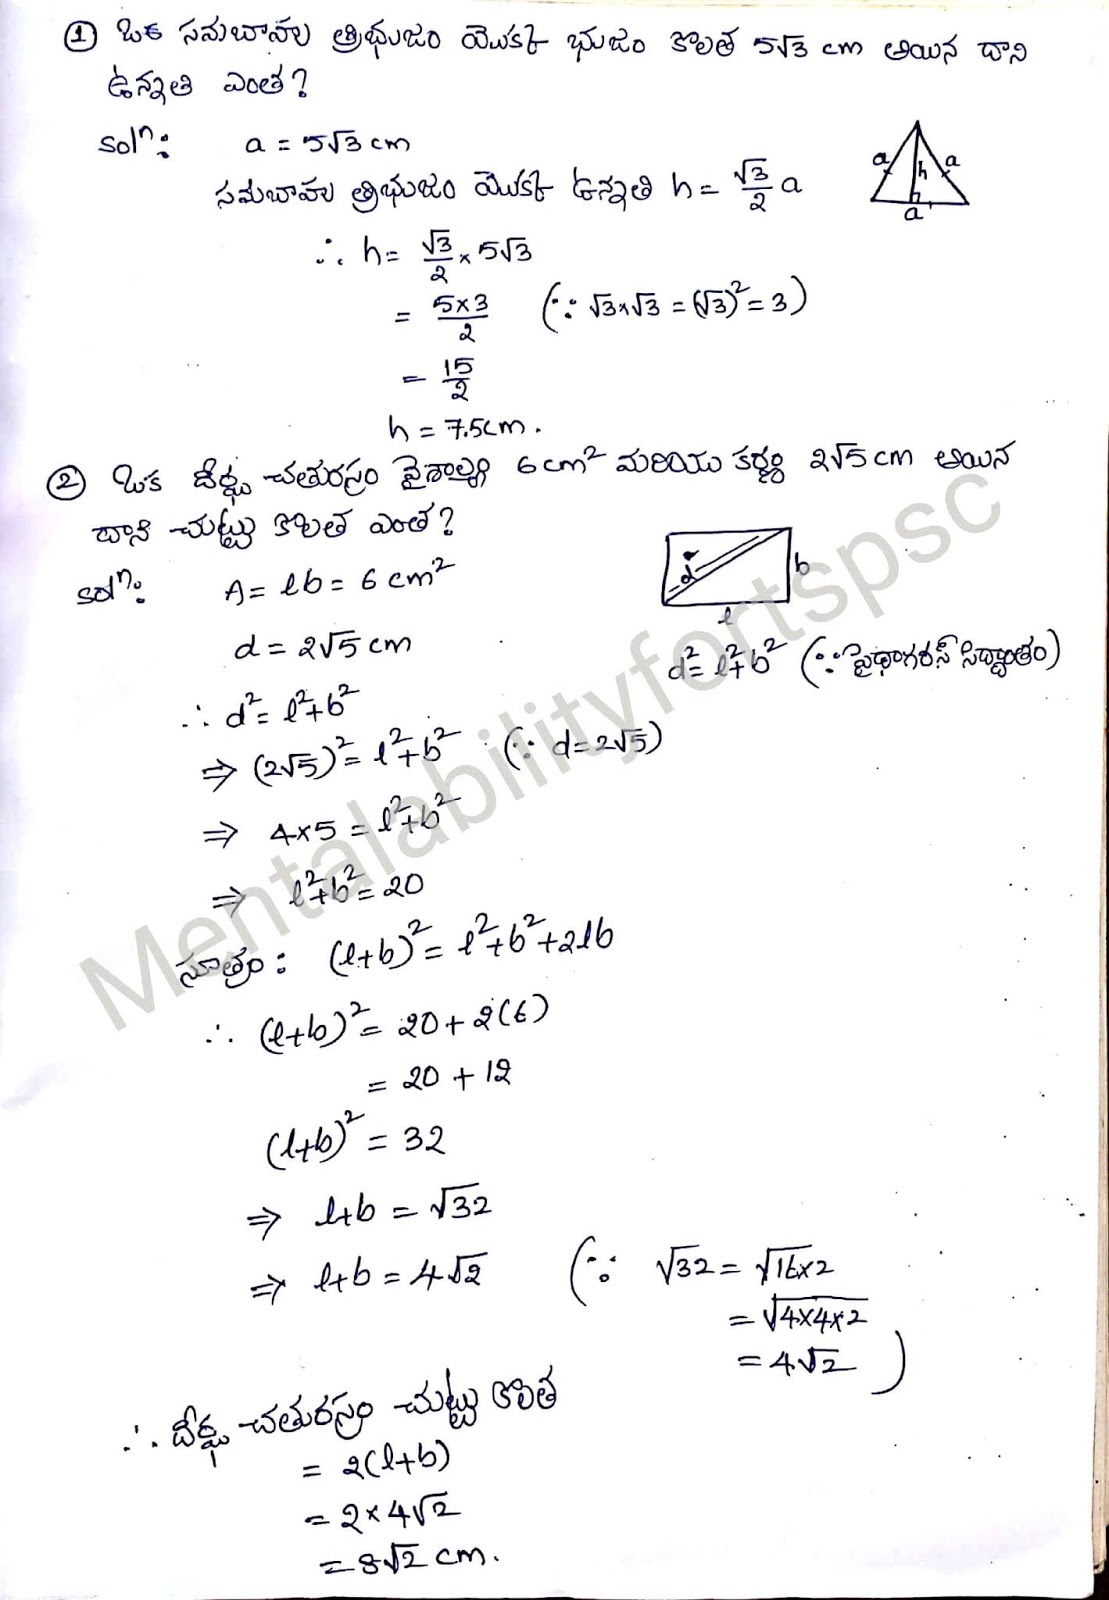 ① ఒక సమబాహు త్రిభుజం యొక్క భుజం కొలత 5√3 cm అయిన దాని
ఉన్నతి ఎంత?
solⁿ: a = 5√3 cm
సమబాహు త్రిభుజం యొక్క ఉన్నతి h = √3/2 a
a h a
a
∴ h = √3/2 × 5√3
= 5×3/2 (∵ √3×√3 = (√3)² = 3)
= 15/2
h = 7.5cm.
② ఒక దీర్ఘ చతురస్రం వైశాల్యం 6 cm² మరియు కర్ణం 2√5 cm అయిన
దాని చుట్టు కొలత ఎంత?
solⁿ: A = lb = 6 cm²
d b
l
d = 2√5 cm
d² = l²+b² (∵ పైథాగరస్ సిద్ధాంతం)
∴ d² = l²+b²
⇒ (2√5)² = l²+b² (∵ d=2√5)
⇒ 4×5 = l²+b²
⇒ l²+b² = 20
సూత్రం : (l+b)² = l²+b²+2lb
∴ (l+b)² = 20+2(6)
= 20+12
(l+b)² = 32
⇒ l+b = √32
⇒ l+b = 4√2 (∵ √32 = √16×2
= √4×4×2
= 4√2 )
∴ దీర్ఘ చతురస్రం చుట్టు కొలత
= 2(l+b)
= 2×4√2
= 8√2 cm.
Mentalabilityfortspsc